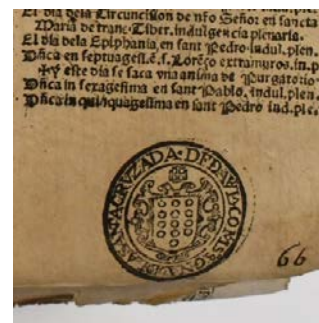 El dia dela Circuncision de nřo Señor en sancta
Maria de trans Tiber. indulgencia plenaria.
El dia dela Epiphania en sant Pedro indul. plen.
Dñica en septuages. ē. s. Lorēço extramuros. in. p
✠Y este dia se saca vna anima de Purgatorio
Dñica in sexagesima en sant Pablo. indul. plen.
Dñica in quinquagesima en sant Pedro ind. ple.
SANTACRUZADA·DE
66